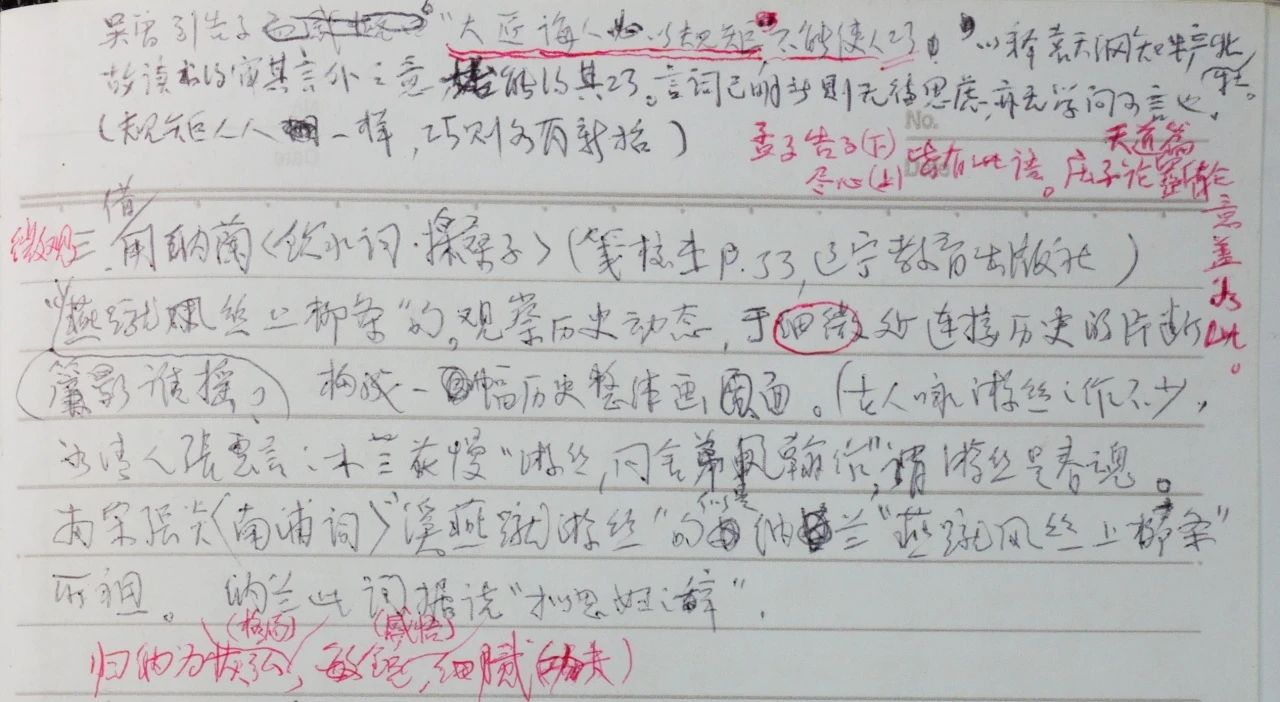 吴曾引告子 "大匠诲人必以规矩,不能使人巧。"以释袁天纲知
故读书得审其言外之意 能得其巧。言词已明야则无待思虑,亦无学问可言也。
(规矩人人 一样,巧则各有新招)
No.
孟子告子(下)
尽心(上)皆有此语。庄子论
天道篇
意盖如此。
微观三、借用纳兰〈饮水词·采桑子〉(笺校本P.53,辽宁教育出版社)
"燕蹴风丝上柳条"的,观察历史动态,于细微处连接历史的片断
簾影谁摇, 构成一幅历史整体画面。(古人咏游丝之作不少,
如清人张 言:木兰花慢"游丝,同舍弟翰",谓游丝是春魂。
南宋张炎〈南浦词〉"溪燕蹴游丝"的似是纳兰"燕蹴风丝上柳条"
所祖。 纳兰此词据说"拟思妇之辞".
(格局) (感悟)
归纳为恢弘,敏锐,细腻(功夫)